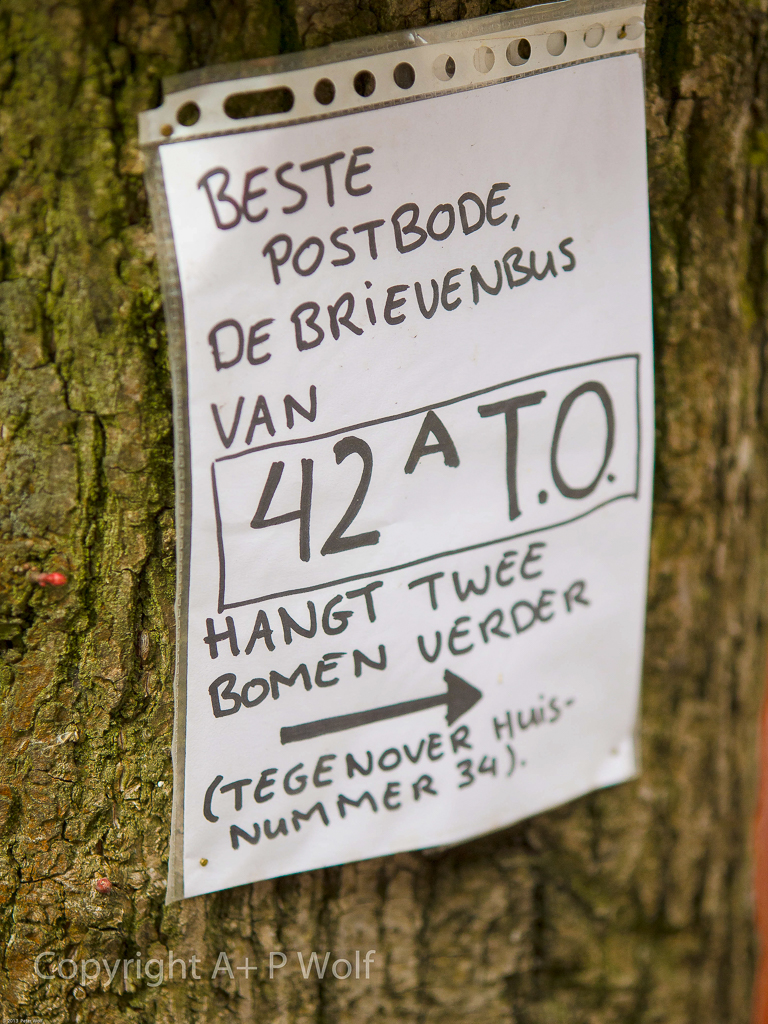 BESTE
POSTBODE,
DE BRIEVENBUS
VAN
42 A T.O.
HANGT TWEE
BOMEN VERDER
(TEGENOVER HUIS-
NUMMER 34).
Copyright A+ P Wolf